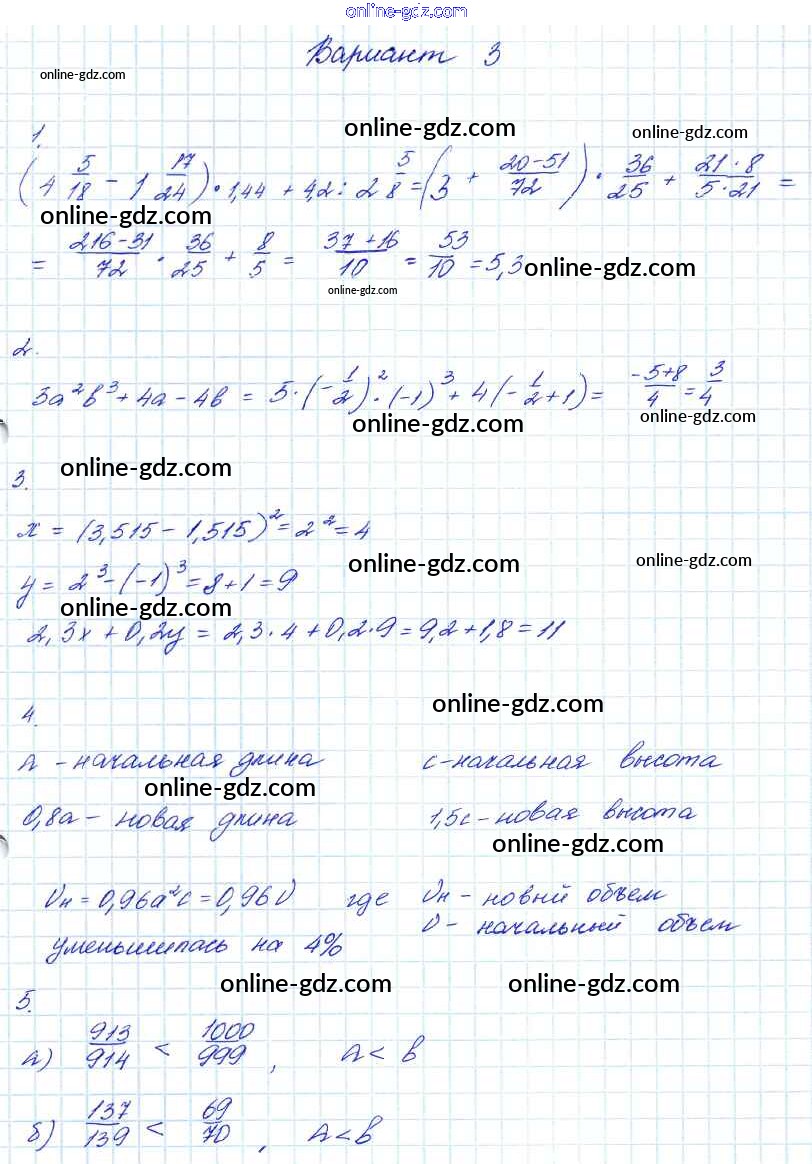 online-gdz.com
Вариант 3
online-gdz.com
1.
online-gdz.com
online-gdz.com
(4 5/18 - 1 17/24) · 1,44 + 4,2 : 2 5/8 = (3 + 20-51/72) · 36/25 + 21·8/5·21 =
online-gdz.com
= 216-31/72 · 36/25 + 8/5 = 37+16/10 = 53/10 = 5,3
online-gdz.com
online-gdz.com
2.
5a²b³ + 4a - 4b = 5·(-1/2)²·(-1)³ + 4(-1/2+1) = -5+8/4 = 3/4
online-gdz.com
online-gdz.com
3.
online-gdz.com
x = (3,515 - 1,515)² = 2² = 4
online-gdz.com
online-gdz.com
y = 2³ - (-1)³ = 8 + 1 = 9
online-gdz.com
2,3x + 0,2y = 2,3·4 + 0,2·9 = 9,2 + 1,8 = 11
online-gdz.com
4.
а - начальная длина с - начальная высота
online-gdz.com
0,8a - новая длина 1,5c - новая высота
online-gdz.com
Vн = 0,96a²c = 0,96V где Vн - новый объем
V - начальный объем
уменьшилась на 4%
online-gdz.com
online-gdz.com
5.
а) 913/914 < 1000/999, a < b
б) 137/139 < 69/70, a < b